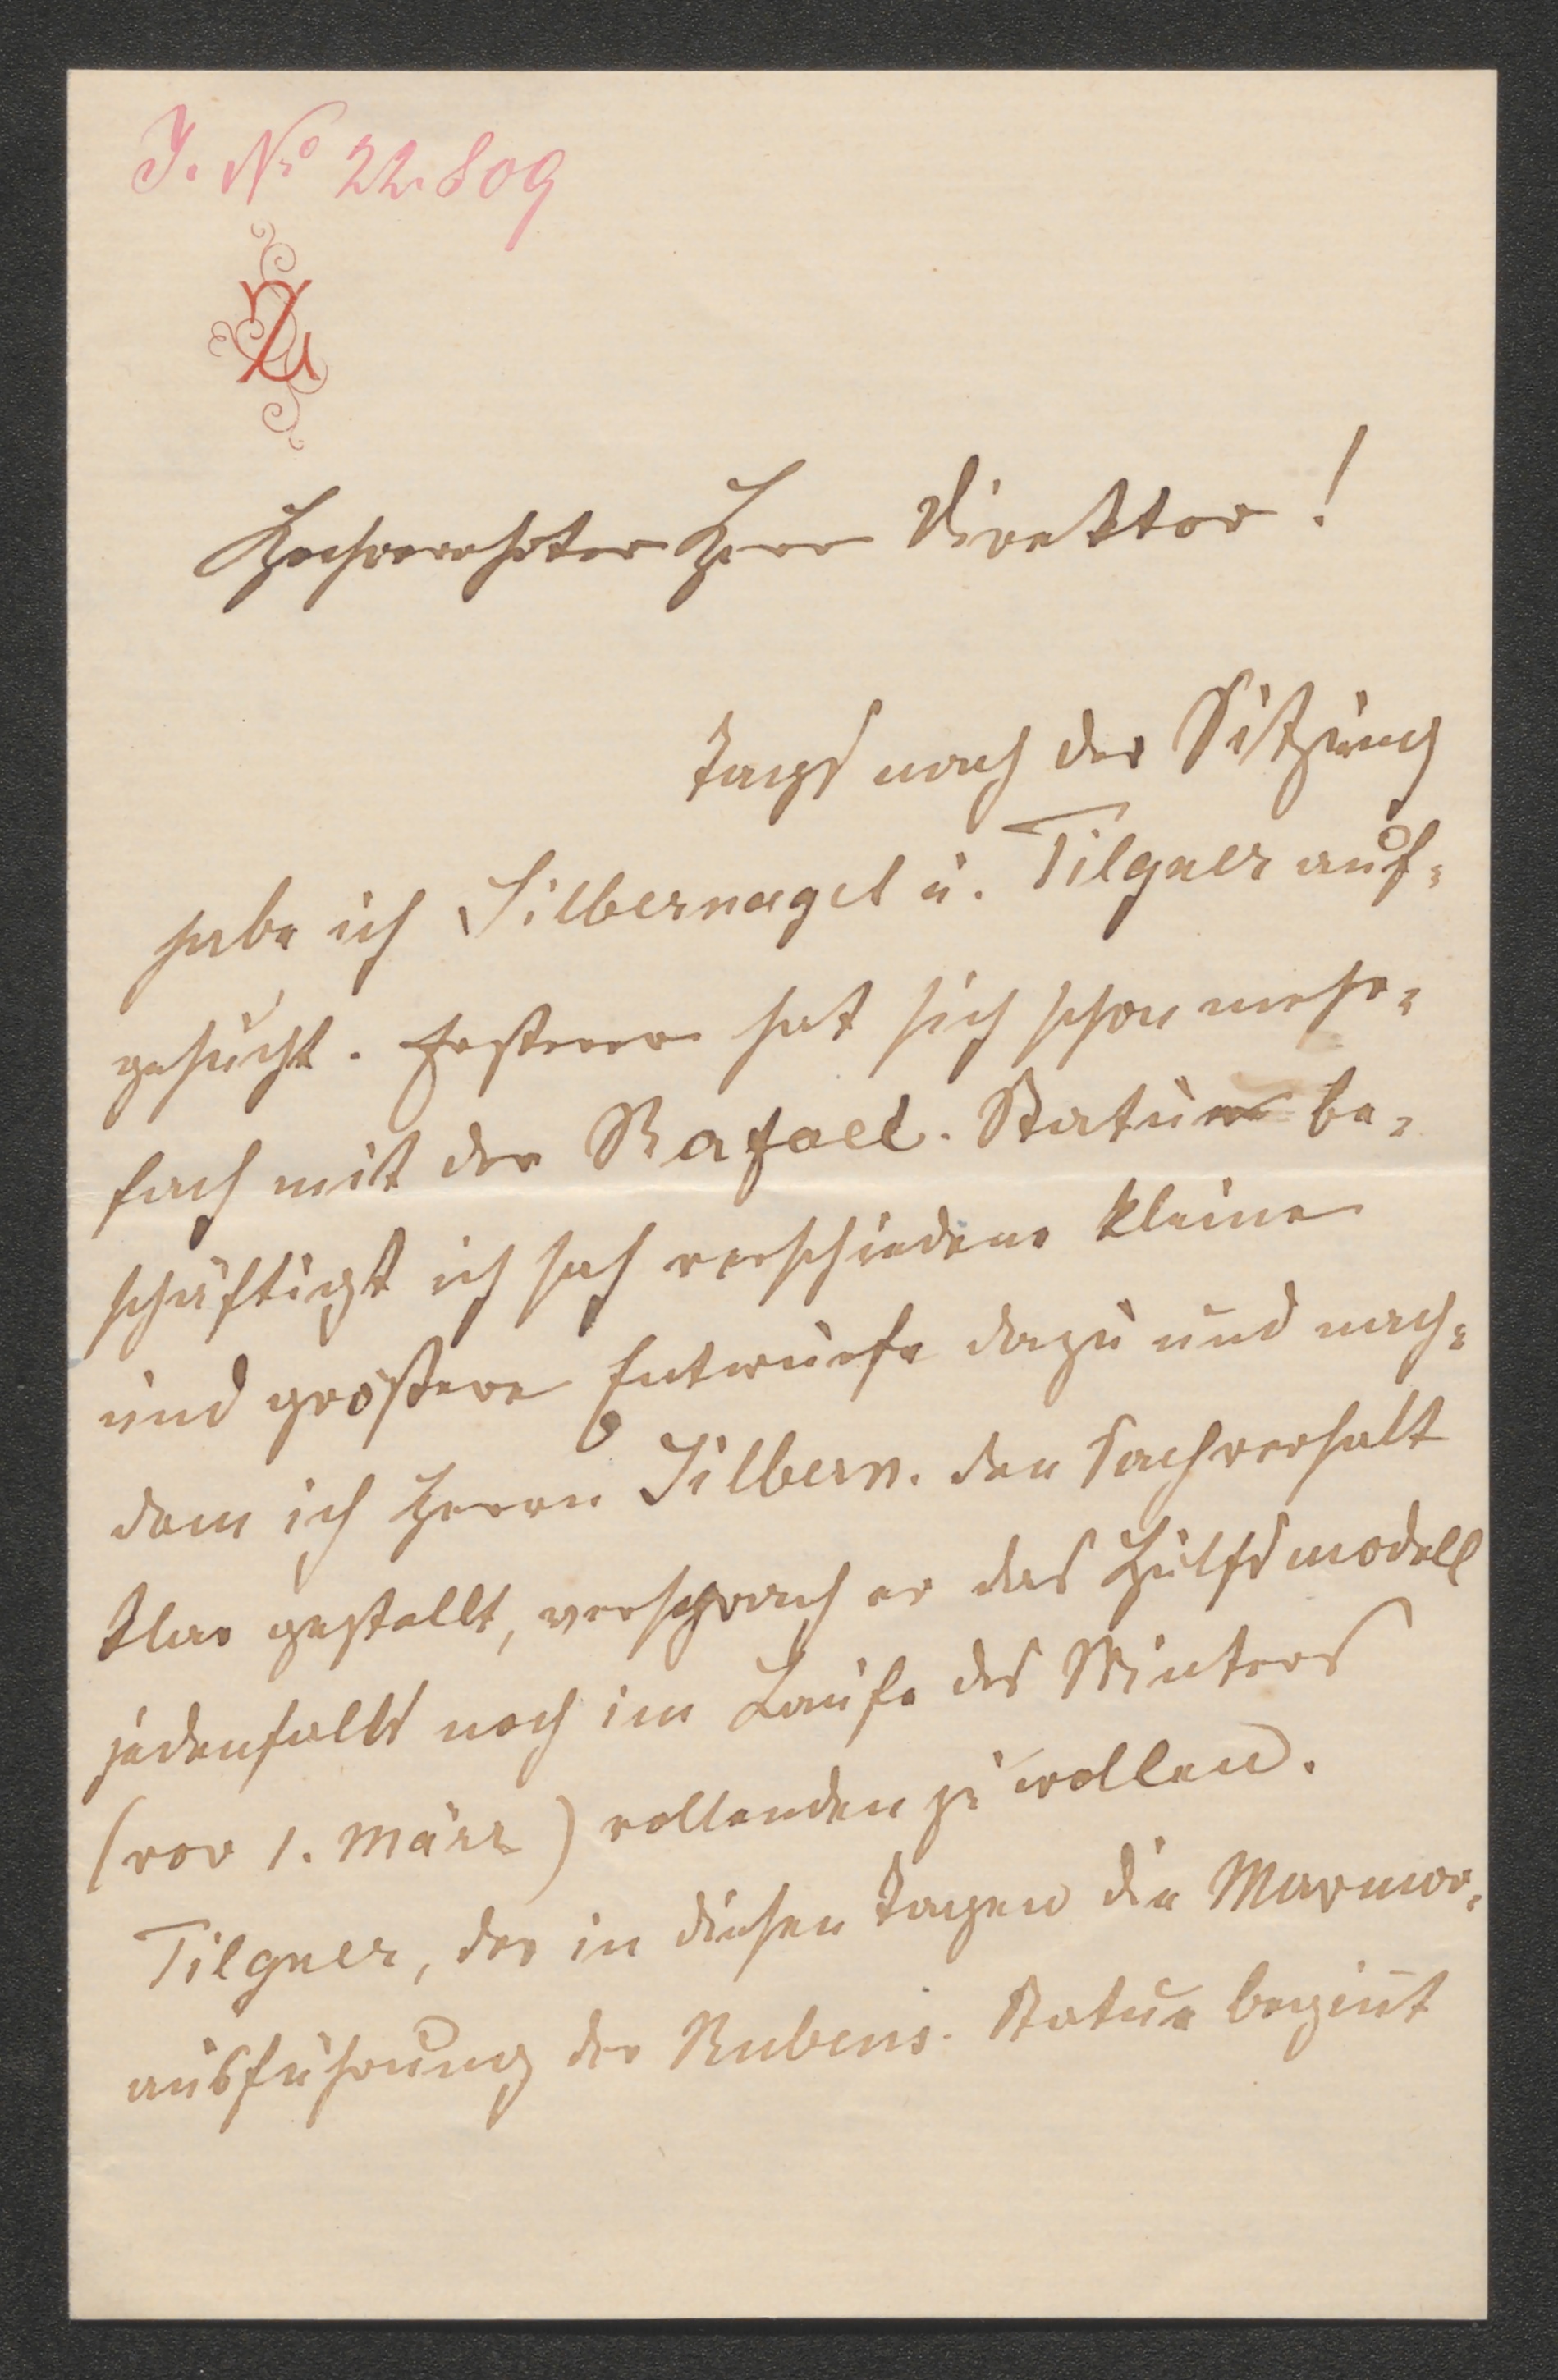 J. No 22.809
Hochverehrter Herr Direktor!
Tags nach der Sitzung
habe ich Silbernagel u. Tilgner auf-
gesucht. Ersterer hat sich schon mehr-
fach mit der Rafael-Statue be-
schäftigt ich sah verschiedene kleine
und größere Entwürfe dazu und nach-
dem ich Herrn Silbern. den Sachverhalt
klar gestellt, versprach er das Hülfsmodell
jedenfalls noch im Laufe des Winters
(vor 1. März) vollenden zu wollen.
Tilgner, der in diesen Tagen die Marmor-
ausführung der Rubens-Statue begin̄t